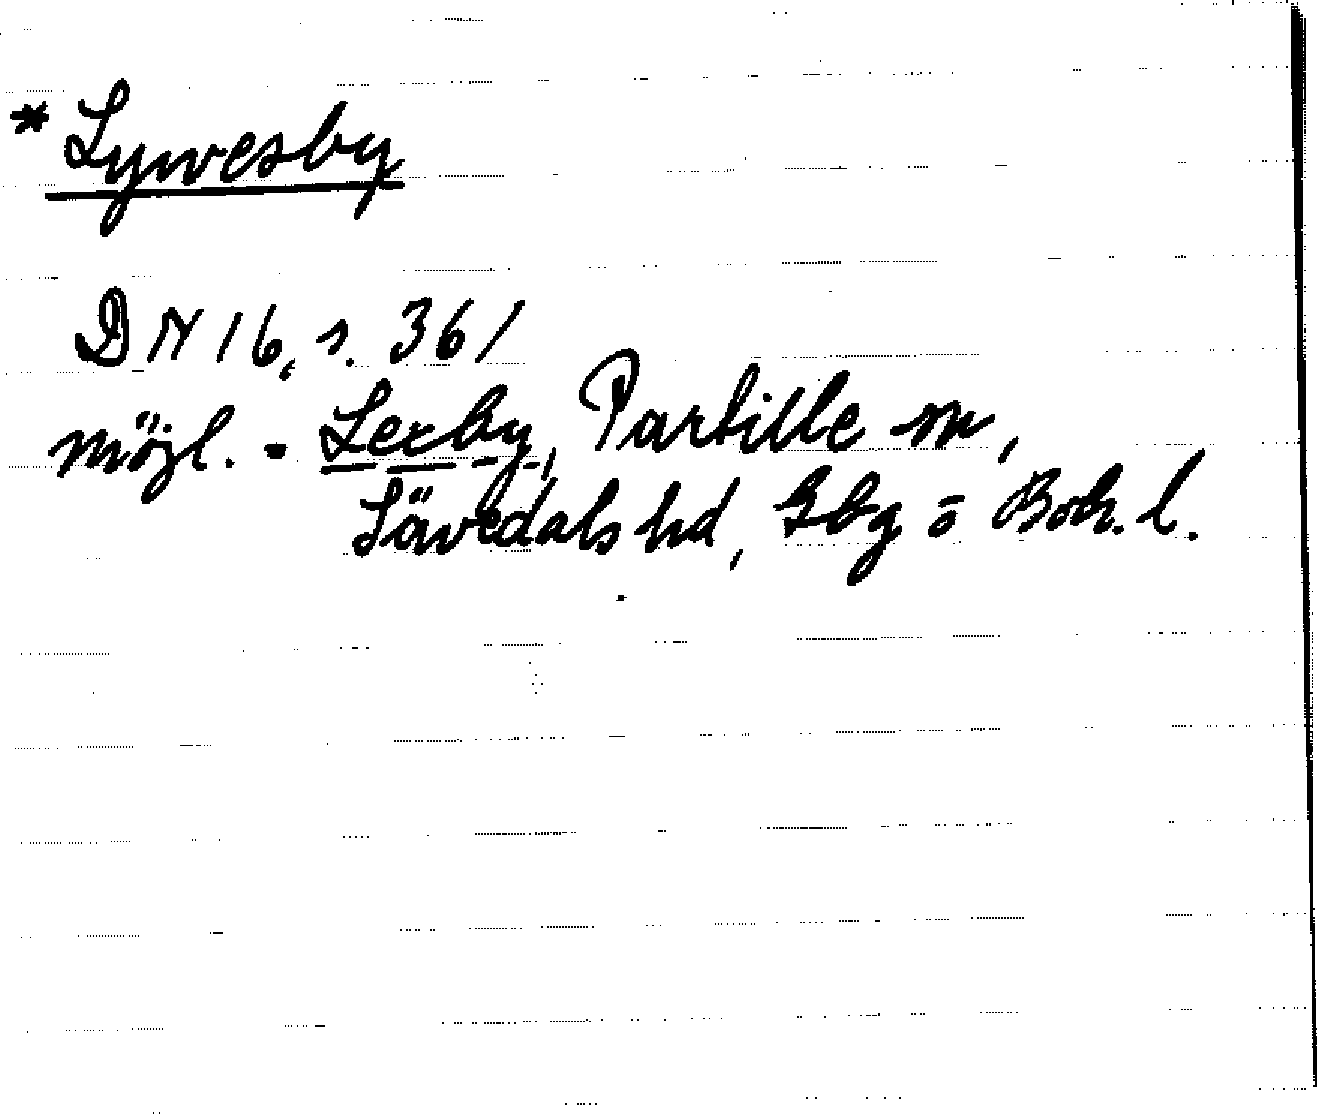 * Lywesby
DN 16, s. 361
möjl. = Lexby, Partille sn,
Sävedals hd, Gbg o Boh. l.